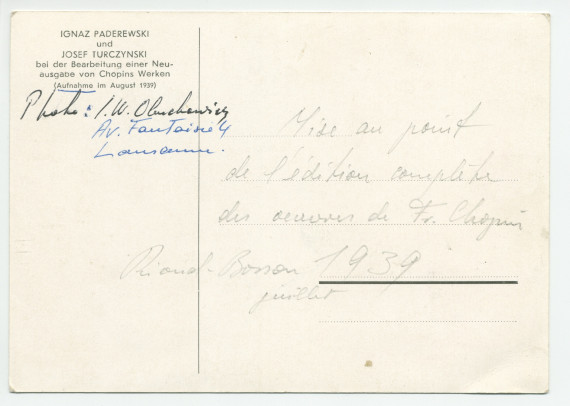 IGNAZ PADEREWSKI
und
JOSEF TURCZYNSKI
bei der Bearbeitung einer Neu-
ausgabe von Chopins Werken
(Aufnahme im August 1939)
Photo: I. W.
Av. Fantaisie 4
Lausanne.
Mise au point
de l'édition complète
des oeuvres de Fr. Chopin
Riond-Bosson 1939
juillet